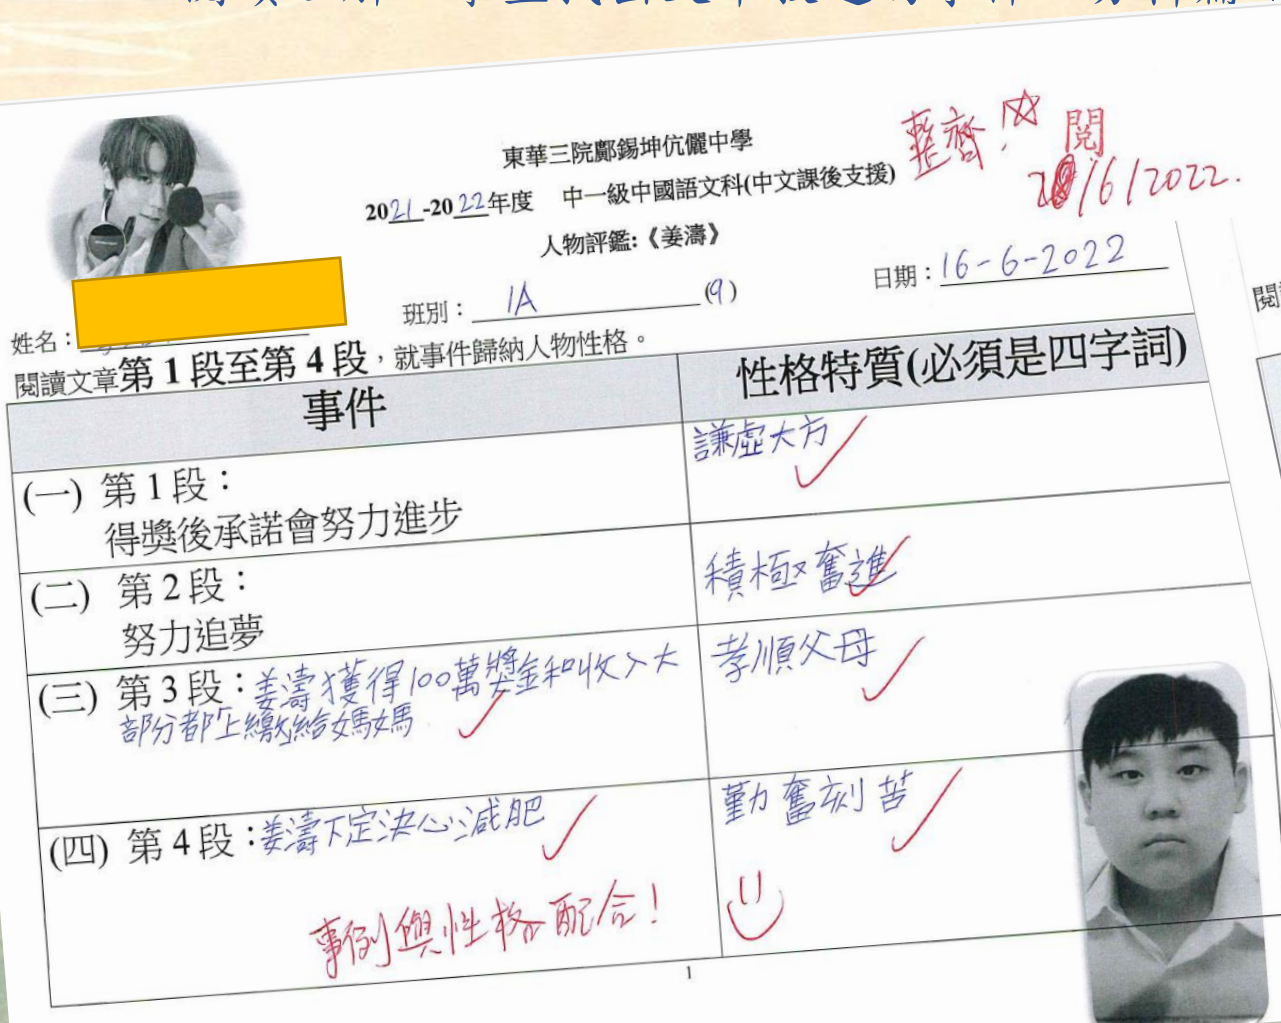 東華三院鄺錫坤伉儷中學
2021-2022年度 中一級中國語文科(中文課後支援)
人物評鑑:《姜濤》
整齊!☆ 閱
28/6/2022.
姓名:
班別: 1A (9)
日期: 16-6-2022
閱讀文章第 1 段至第 4 段,就事件歸納人物性格。
事件
性格特質(必須是四字詞)
(一) 第 1 段:
得獎後承諾會努力進步
謙虛大方
(二) 第 2 段:
努力追夢
積極奮進
(三) 第 3 段:姜濤獲得100萬獎金和收入大
部分都上繳給媽媽
孝順父母
(四) 第 4 段:姜濤下定決心減肥
勤奮刻苦
事例與性格配合!
1